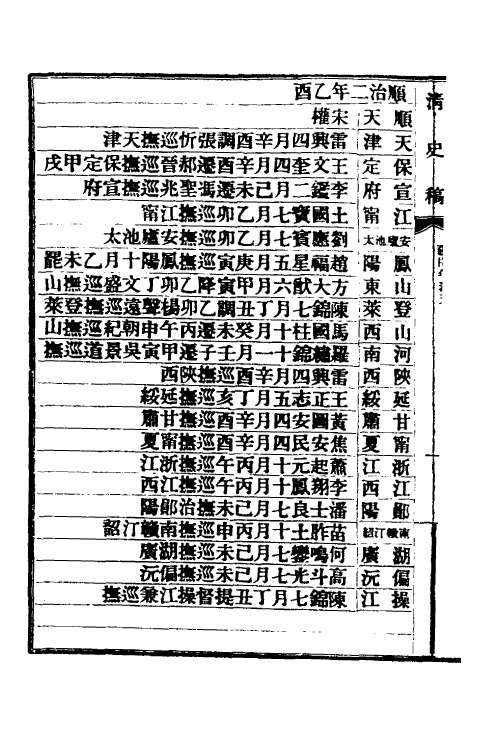 清史稿
順治二年乙酉
順天 宋權
天津 雷興四月辛酉調張忻巡撫天津
保定 王文奎四月辛酉遷郝晉巡撫保定甲戌
宣府 李鑑二月己未遷馮聖兆巡撫宣府
江甯 土國寶七月乙卯巡撫江甯
安廬池太 劉應賓七月乙卯巡撫安廬池太
鳳陽 趙福星五月庚寅巡撫鳳陽十月乙未罷
山東 方大猷六月甲寅降乙卯丁文盛巡撫山
登萊 陳錦七月丁丑調乙卯楊聲遠巡撫登萊
山西 馬國柱十月癸未遷丙午申朝紀巡撫山
河南 羅繡錦十一月壬子遷甲寅吳景道巡撫
陝西 雷興四月辛酉巡撫陝西
延綏 王正志五月丁亥巡撫延綏
甘肅 黃圖安四月辛酉巡撫甘肅
甯夏 焦安民四月辛酉巡撫甯夏
浙江 蕭起元十月丙午巡撫浙江
江西 李翔鳳十月丙午巡撫江西
鄖陽 潘士良七月己未撫治鄖陽
南贛汀韶 苗胙土十月丙申巡撫南贛汀韶
湖廣 何鳴鑾七月己未巡撫湖廣
偏沅 高斗光七月己未巡撫偏沅
操江 陳錦七月丁丑提督操江兼巡撫